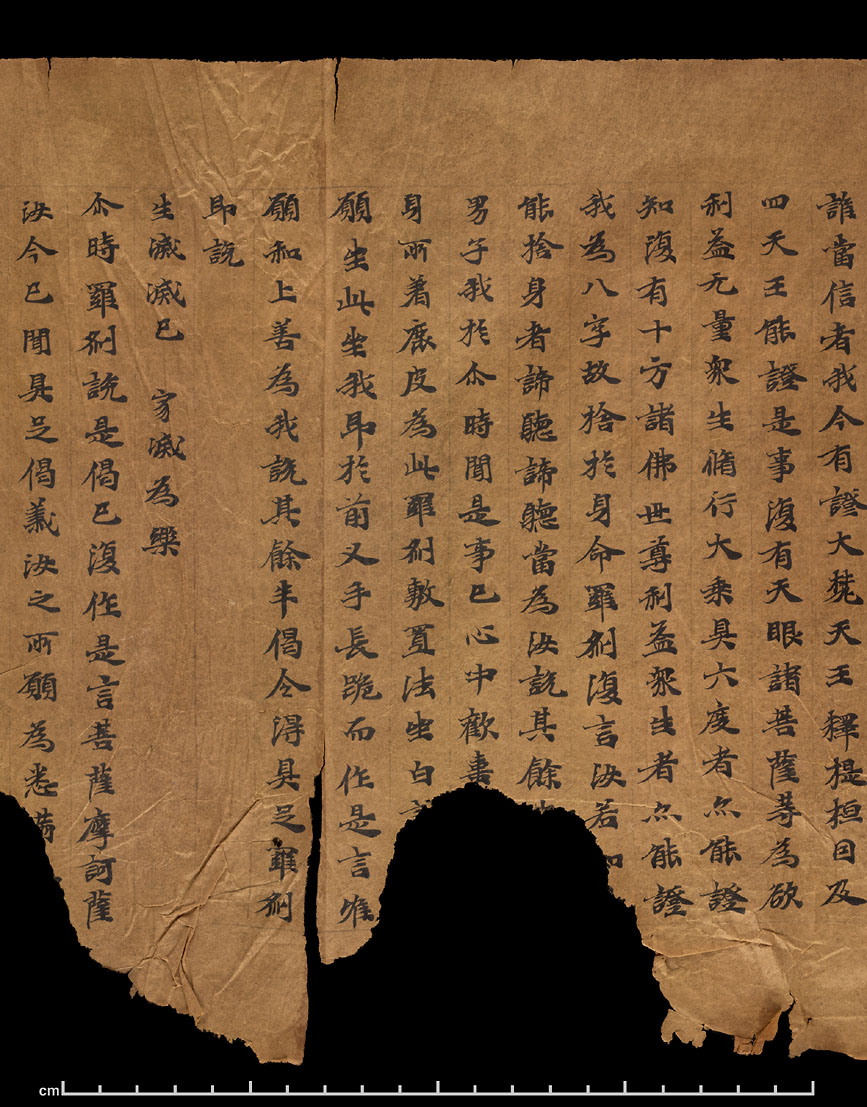 誰當信者我今有證大梵天王釋提桓因及
四天王能證是事復有天眼諸菩薩等為欲
利益无量衆生脩行大乘具六度者亦能證
知復有十方諸佛世尊利益衆生者亦能證
我為八字故捨於身命羅刹復言汝若
能捨身者諦聽諦聽當為汝說其餘
男子我於尒時聞是事已心中歡喜
身所着鹿皮為此羅刹敷置法坐白
願坐此坐我即於前叉手長跪而作是言唯
願和上善為我說其餘半偈令得具足羅刹
即說
生滅滅已 寂滅為樂
尒時羅刹說是偈已復作是言菩薩摩訶薩
汝今已聞具足偈義汝之所願為悉滿